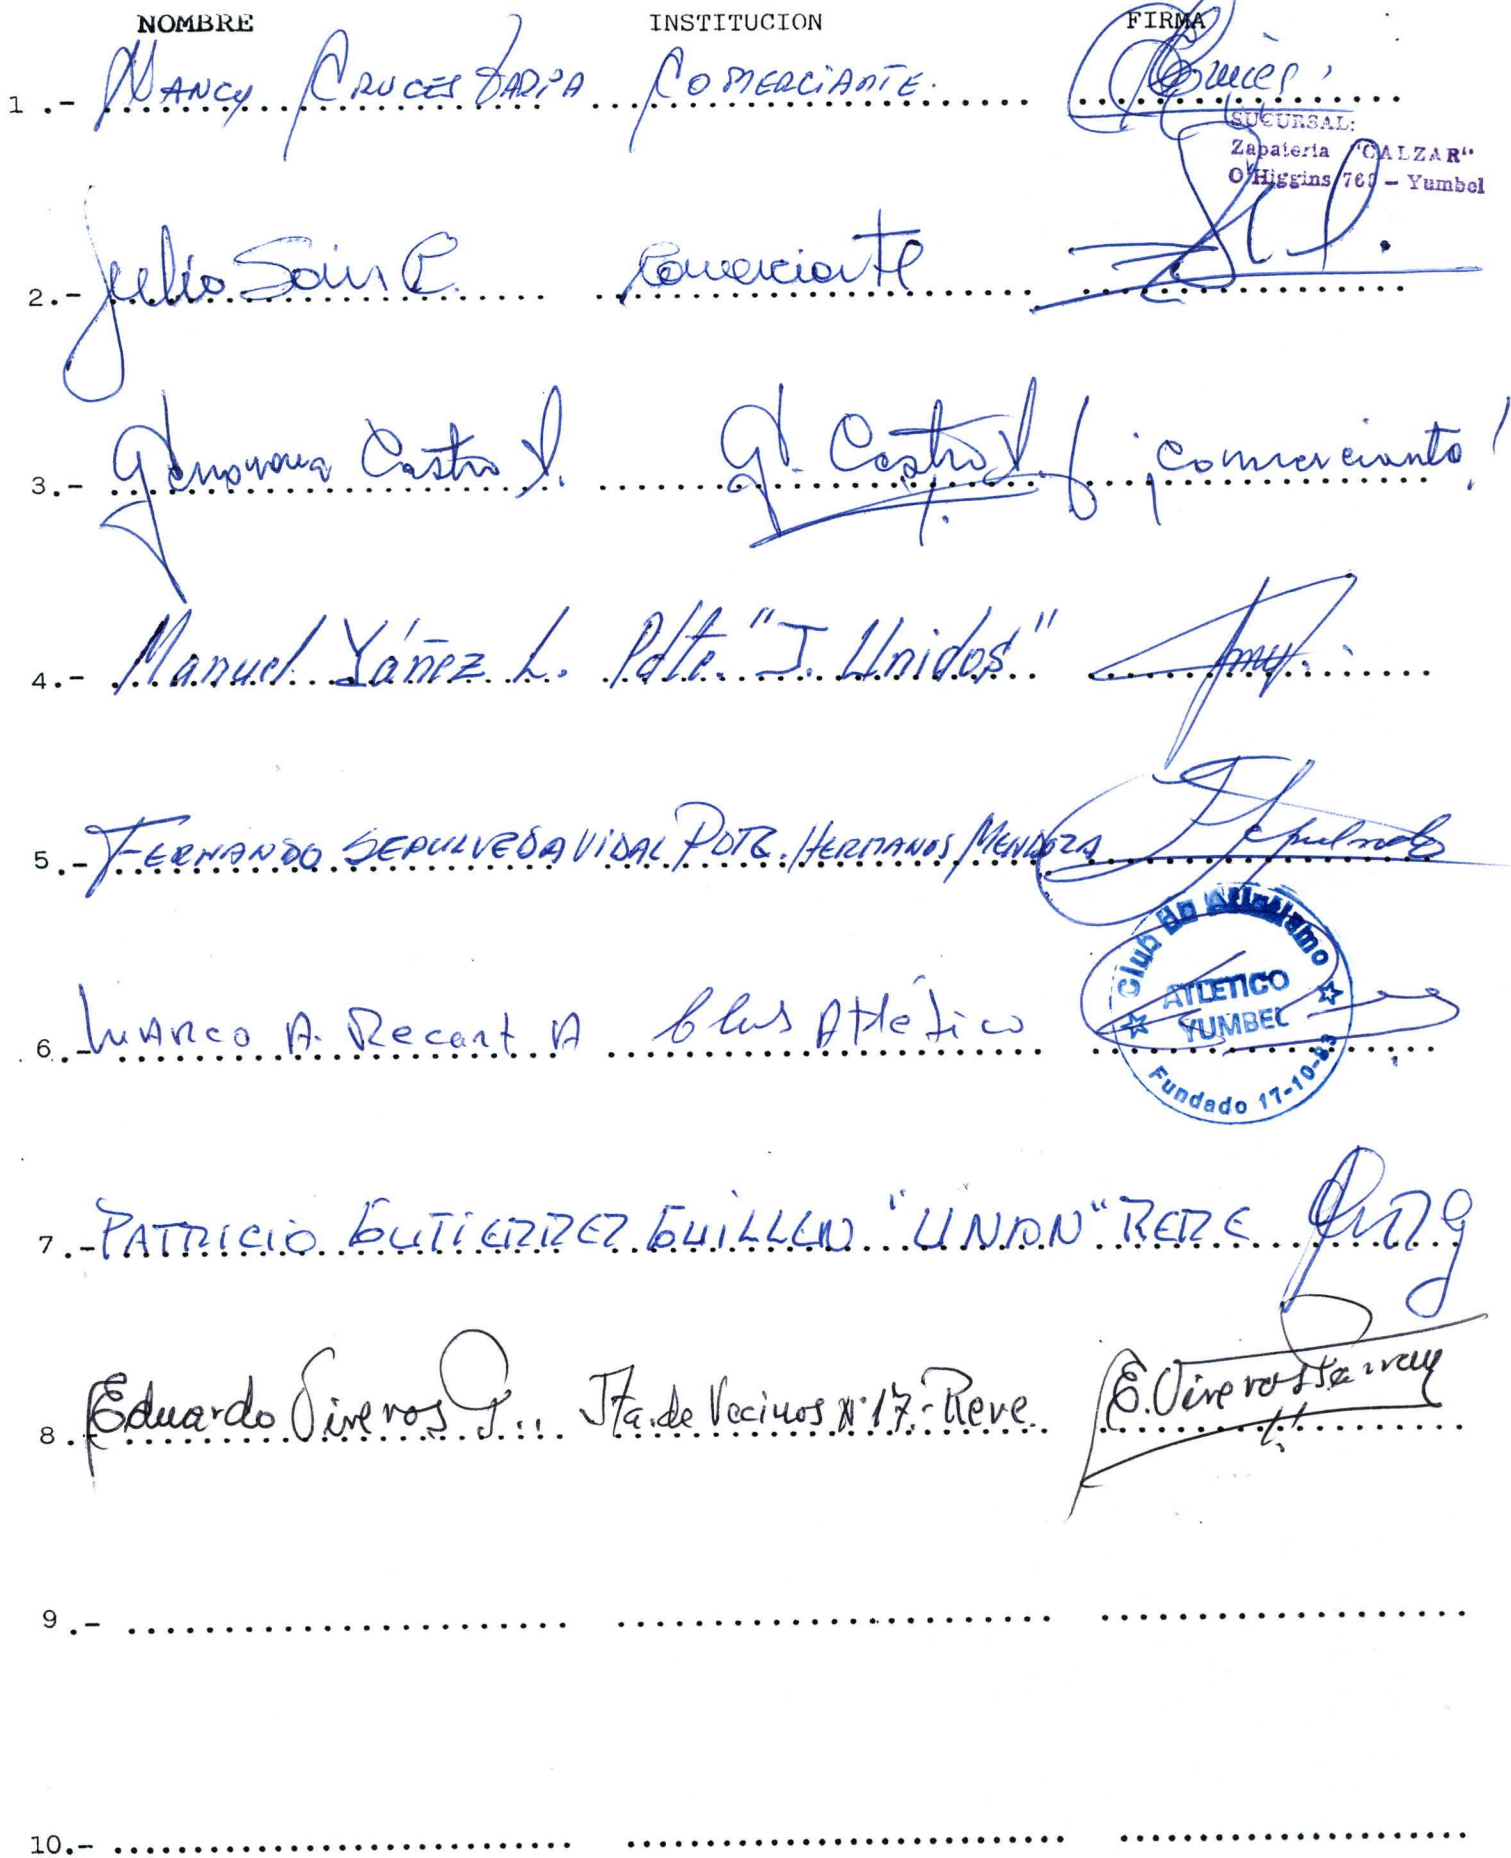 NOMBRE INSTITUCION FIRMA
1.- NANCY CRUCES TAPIA COMERCIANTE. Cruces
SUCURSAL:
Zapateria "CALZAR"
O'Higgins 769 - Yumbel
2.- Julio Sain C. Comerciante
3.- Genoveva Castro G. Castro ¡comerciante!
4.- Manuel Yáñez L. Pdte. "J. Unidos"
5.- FERNANDO SEPULVEDA VIDAL PDTE. HERMANOS MENDOZA Sepulveda
Club de Atletismo
ATLETICO
YUMBEL
Fundado 17-10-83
6.- MARCO A. Recart A Club Atlético
7.- PATRICIO GUTIERREZ GUILLEN "UNION" RERE
8.- Eduardo Viveros G. Jta. de Vecinos Nº 17.- Rere. E. Viveros
9.-
10.-